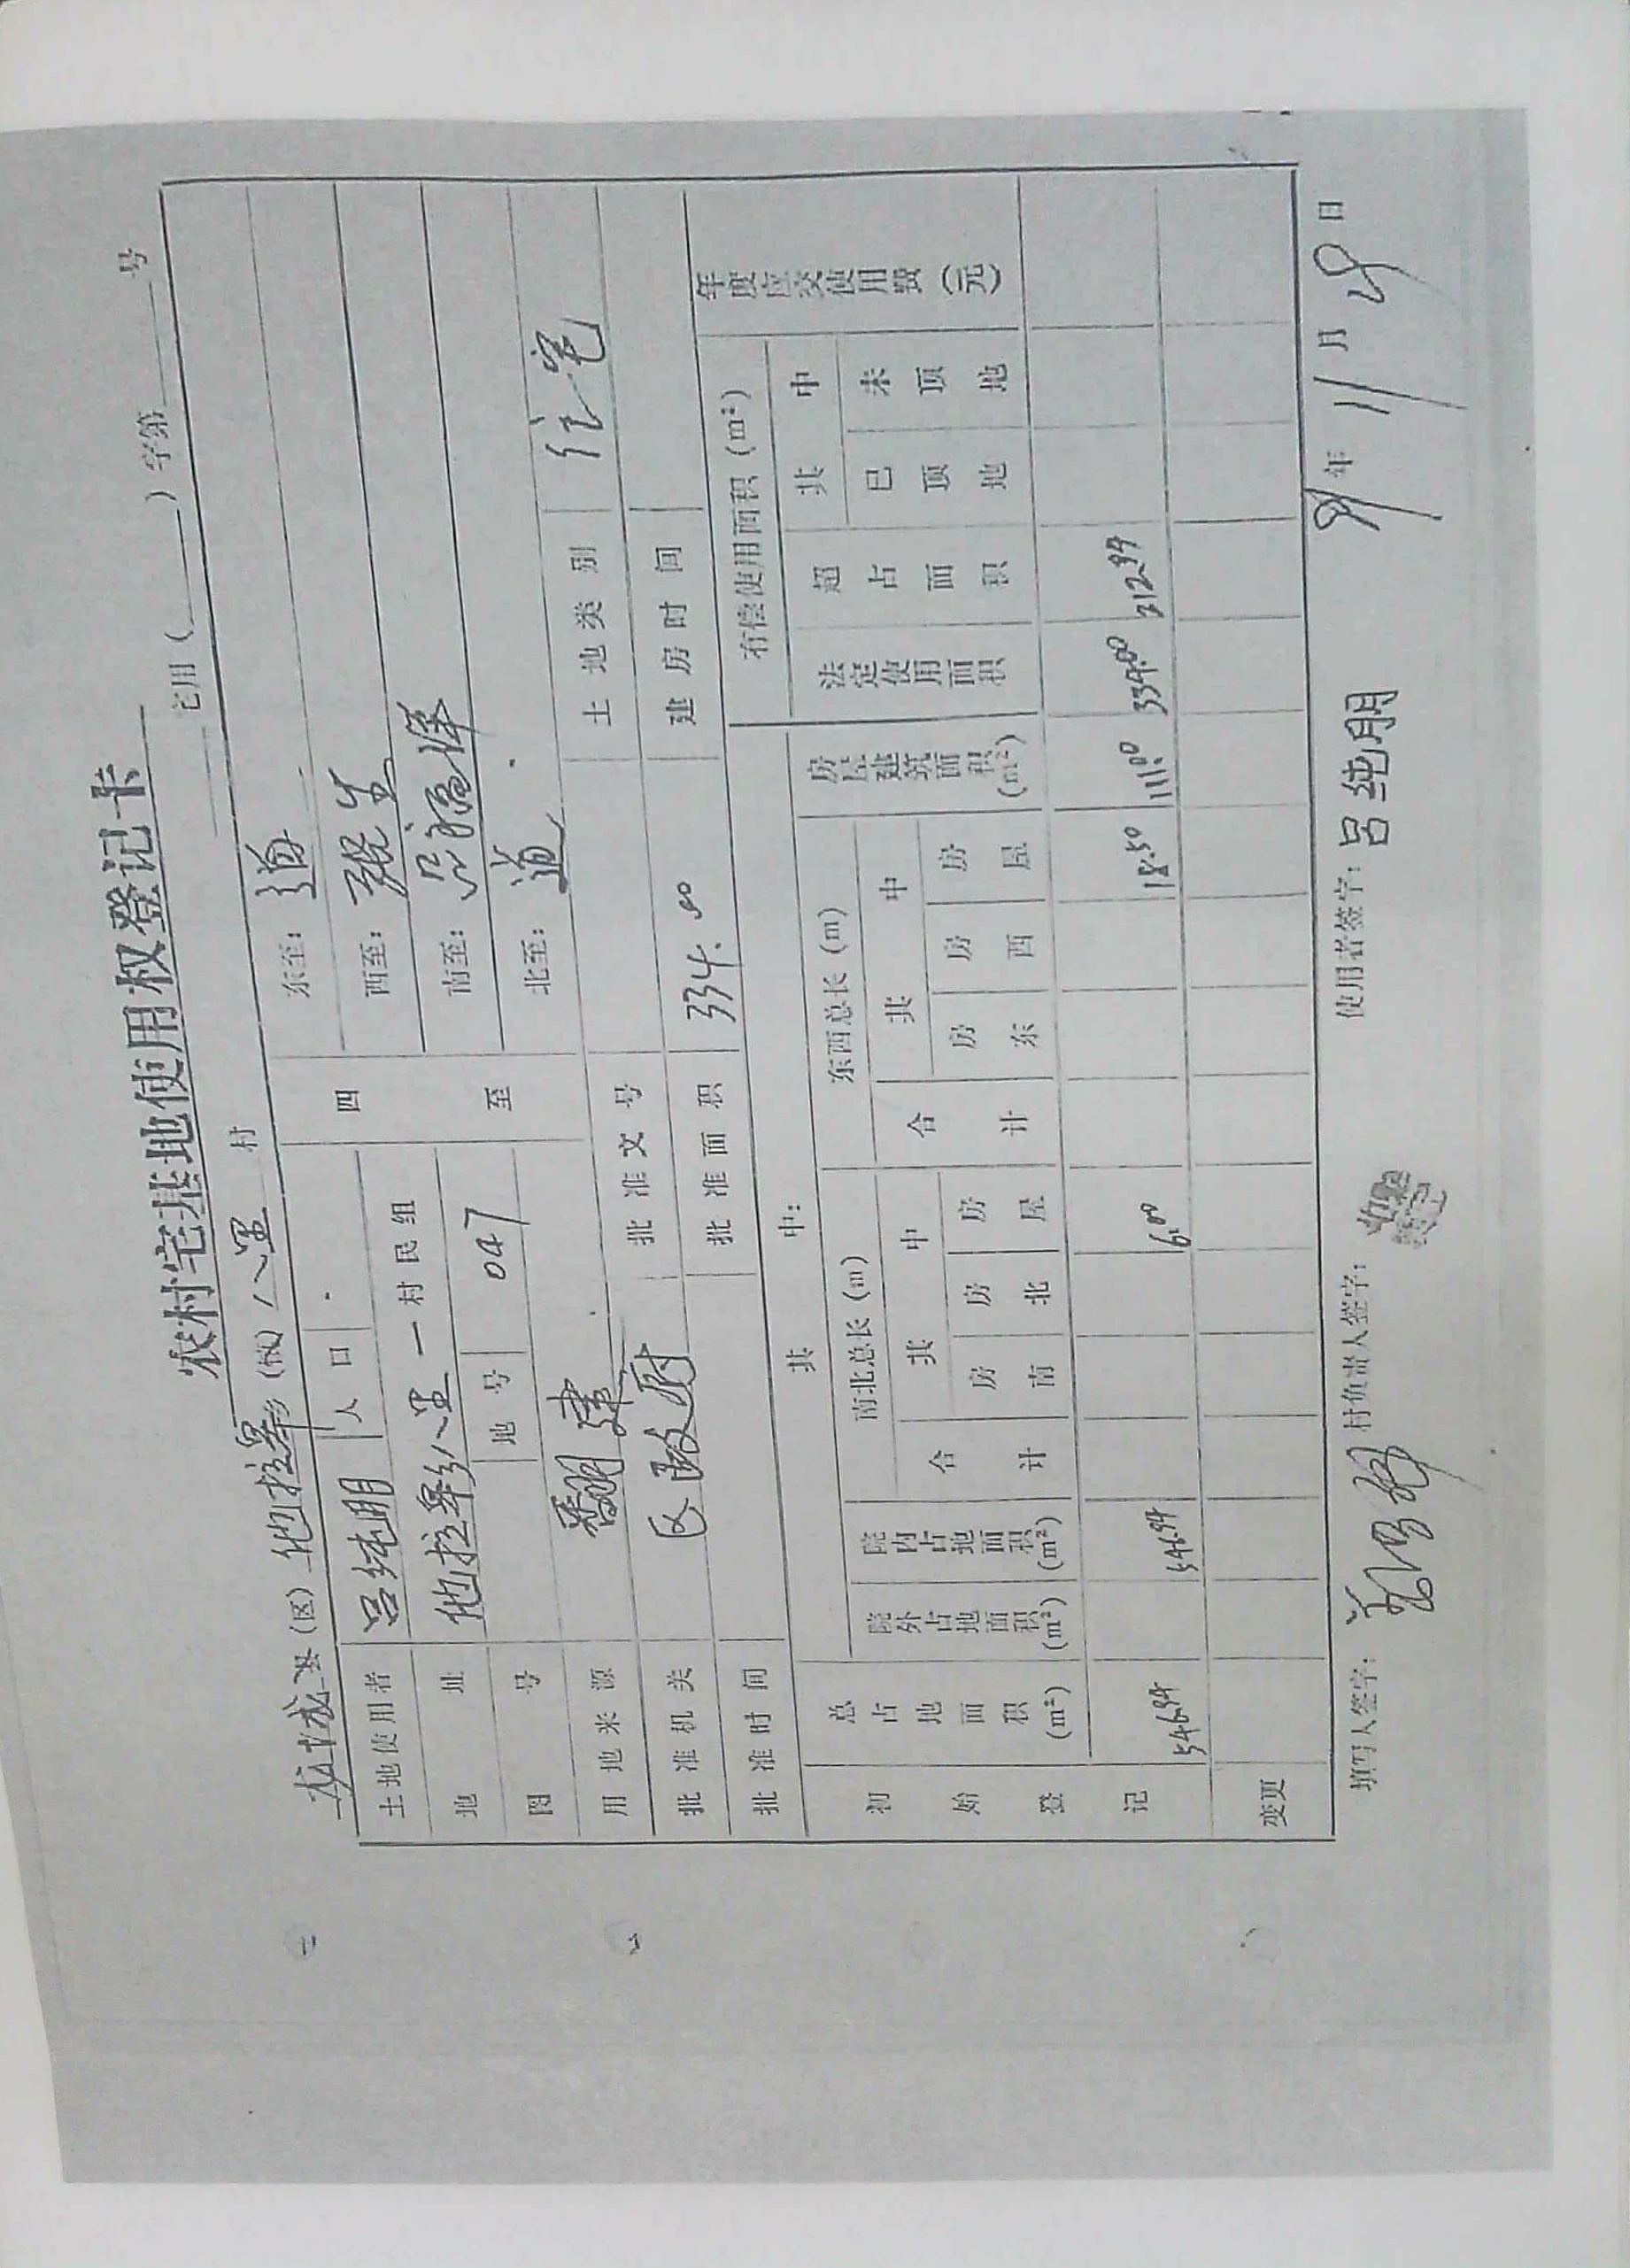 农村宅基地使用权登记卡
宅用（ ）字第 号
龙城县（区）他拉皋乡（镇）八里 村
土地使用者 吕纯朋 人口 四至 东至：道
地址 他拉皋乡八里一村民组 西至：张生
图号 地号 047 南至：吕福祥
北至：道
用地来源 翻建 批准文号 土地类别 住宅
批准机关 区政府 批准面积 334.00 建房时间
批准时间
总占地面积(m²) 其中： 有偿使用面积(m²) 年度应交使用费（元）
院外占地面积(m²) 院内占地面积(m²) 南北总长(m) 东西总长(m) 房屋建筑面积(m²) 法定使用面积 超占面积 其中
合计 其中 合计 其中 已顶地 未顶地
房南 房北 房屋 房东 房西 房屋
初始登记 546.94 546.94 6.00 18.50 111.0 334.00 212.94
变更
填写人签字： 村负责人签字： 使用者签字：吕纯朋 91年11月 日